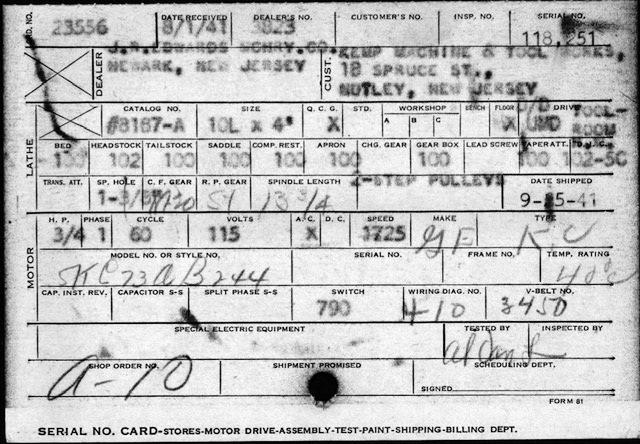 RD. NO. DATE RECEIVED DEALER'S NO. CUSTOMER'S NO. INSP. NO. SERIAL NO.
23556 8/1/41 3823 118,251
DEALER J.R.EDWARDS MCHRY.CO. CUST. KEMP MACHINE & TOOL WORKS,
NEWARK, NEW JERSEY 18 SPRUCE ST.,
NUTLEY, NEW JERSEY
CATALOG NO. SIZE Q. C. G. STD. WORKSHOP BENCH FLOOR DRIVE
A B C
#8187-A 10L x 4' X X UMD TOOL-
ROOM
LATHE
BED HEADSTOCK TAILSTOCK SADDLE COMP. REST. APRON CHG. GEAR GEAR BOX LEAD SCREW TAPER ATT. D.I.C.
100 102 100 100 100 100 100 100 102-5C
TRANS. ATT. SP. HOLE C. F. GEAR R. P. GEAR SPINDLE LENGTH 2-STEP PULLEYS DATE SHIPPED
51 13 3/4 9-25-41
MOTOR
H. P. PHASE CYCLE VOLTS A. C. D. C. SPEED MAKE TYPE
3/4 1 60 115 X 1725 GE K.C
MODEL NO. OR STYLE NO. SERIAL NO. FRAME NO. TEMP. RATING
5KC73AB244 40°C
CAP. INST. REV. CAPACITOR S-S SPLIT PHASE S-S SWITCH WIRING DIAG. NO. V-BELT NO.
790 410 3450
SPECIAL ELECTRIC EQUIPMENT TESTED BY INSPECTED BY
SHOP ORDER NO. SHIPMENT PROMISED SCHEDULING DEPT.
A-10
SIGNED
FORM 81
SERIAL NO. CARD-STORES-MOTOR DRIVE-ASSEMBLY-TEST-PAINT-SHIPPING-BILLING DEPT.